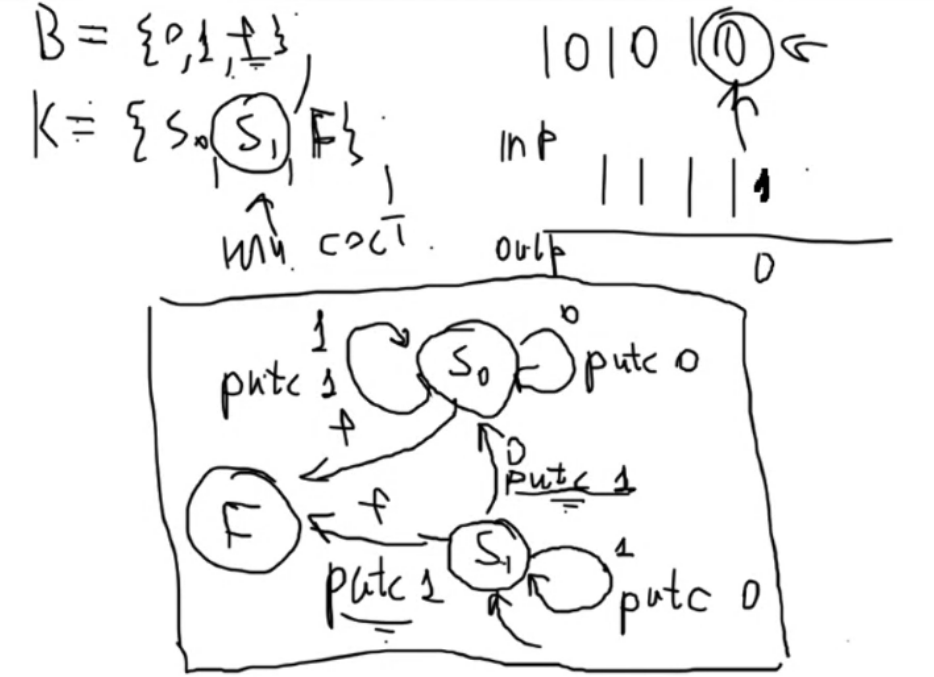 B = {0,1,f}
K = {S₀ S₁, F}
нач. сост.
10101 0
inp
1 1 1 1 1
outp
0
1
putc 1
S₀
0
putc 0
f
0
putc 1
F
f
putc 1
S₁
1
putc 0